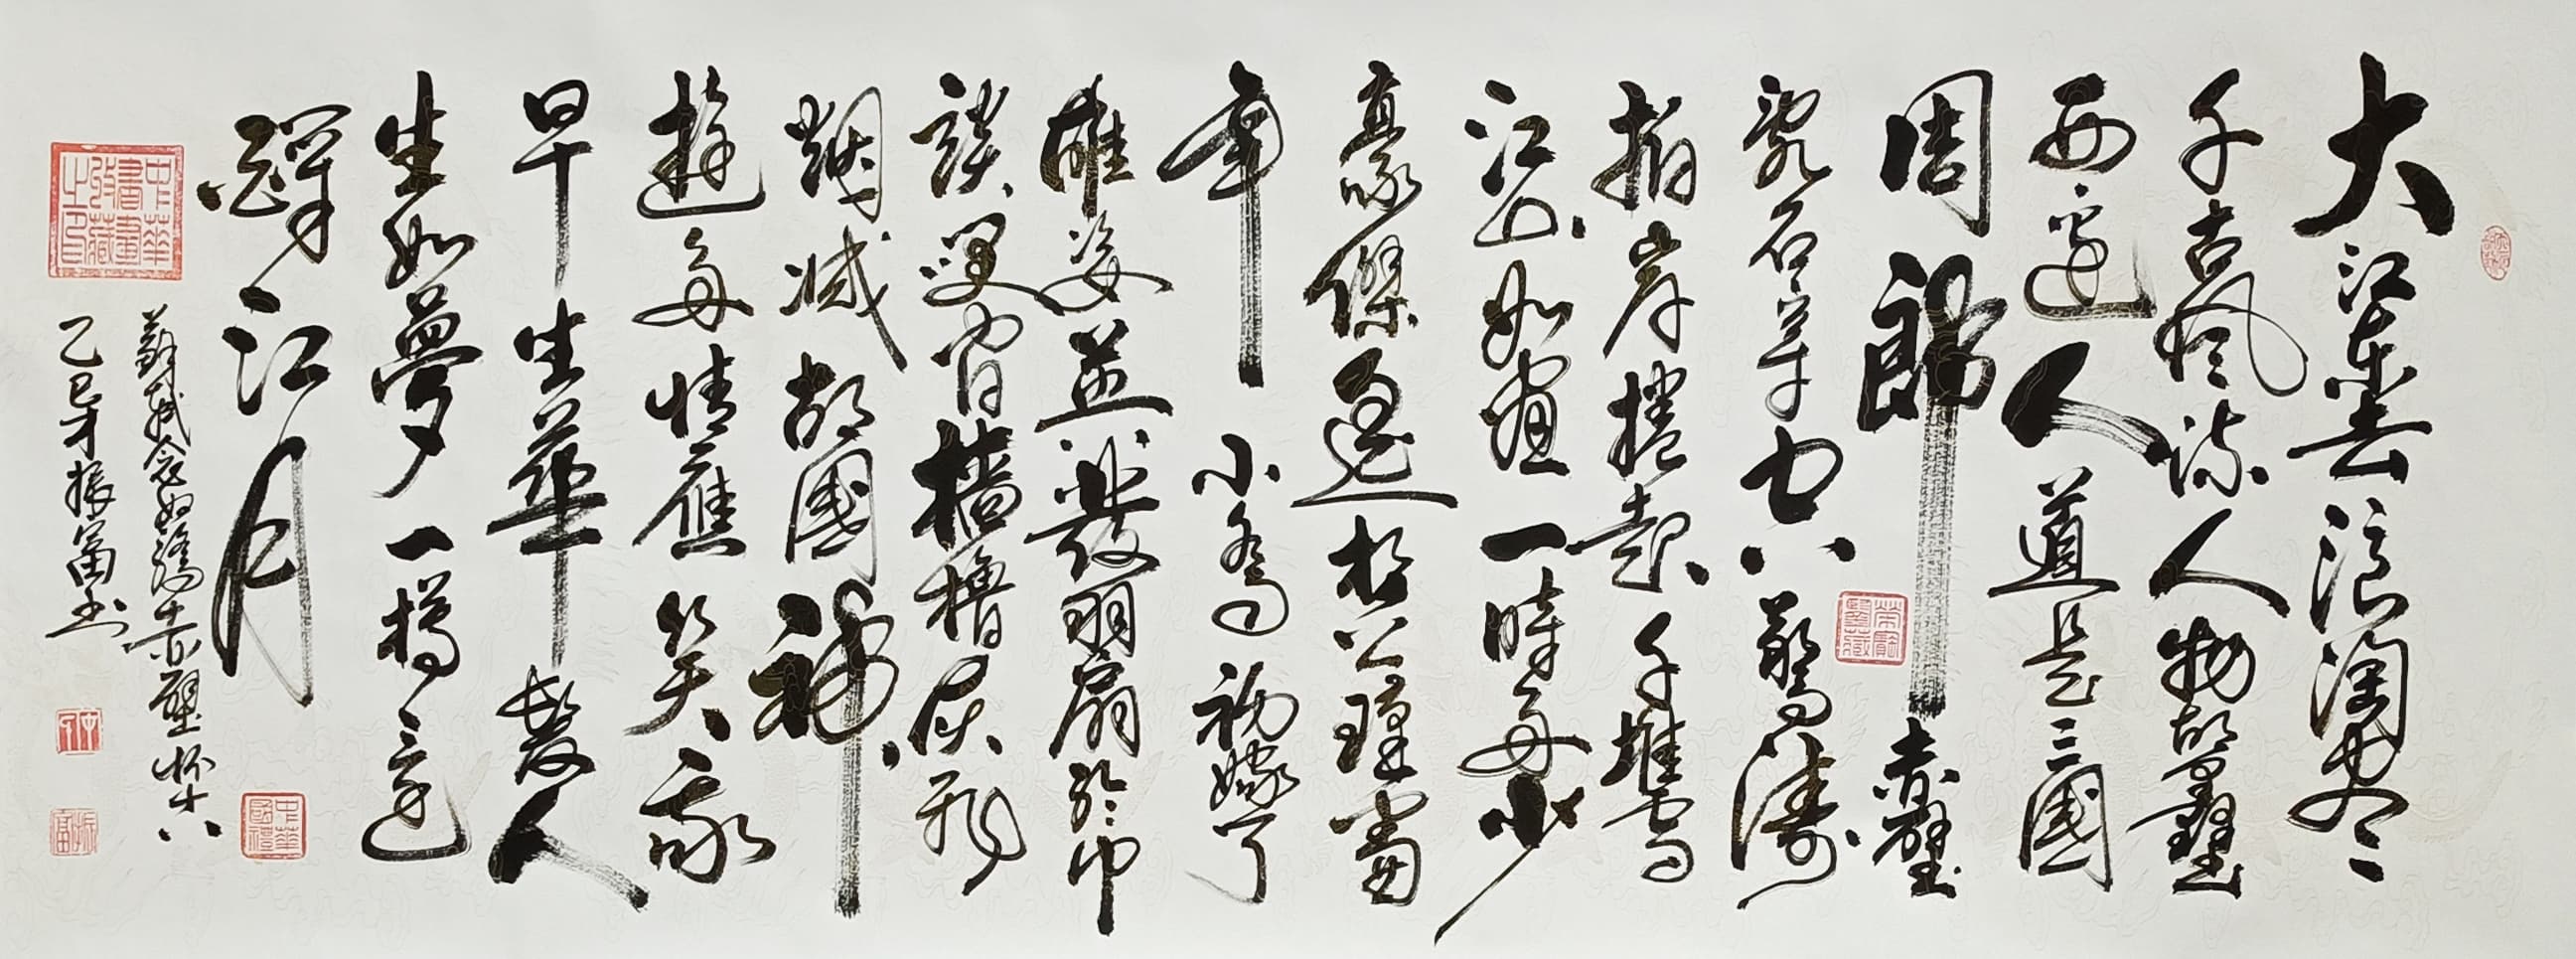 大江東去浪淘盡
千古風流人物故壘
西邊人道是三國
周郎赤壁
亂石穿空驚濤
拍岸捲起千堆雪
江山如畫一時多少
豪傑遙想公瑾當
年小喬初嫁了
雄姿英發羽扇綸巾
談笑間檣櫓灰飛
烟滅故國神
遊多情應笑我
早生華髮人
生如夢一樽還
酹江月
蘇軾念奴嬌赤壁懷古
乙巳年振富書
中華書畫收藏之印
中華國禮
振富